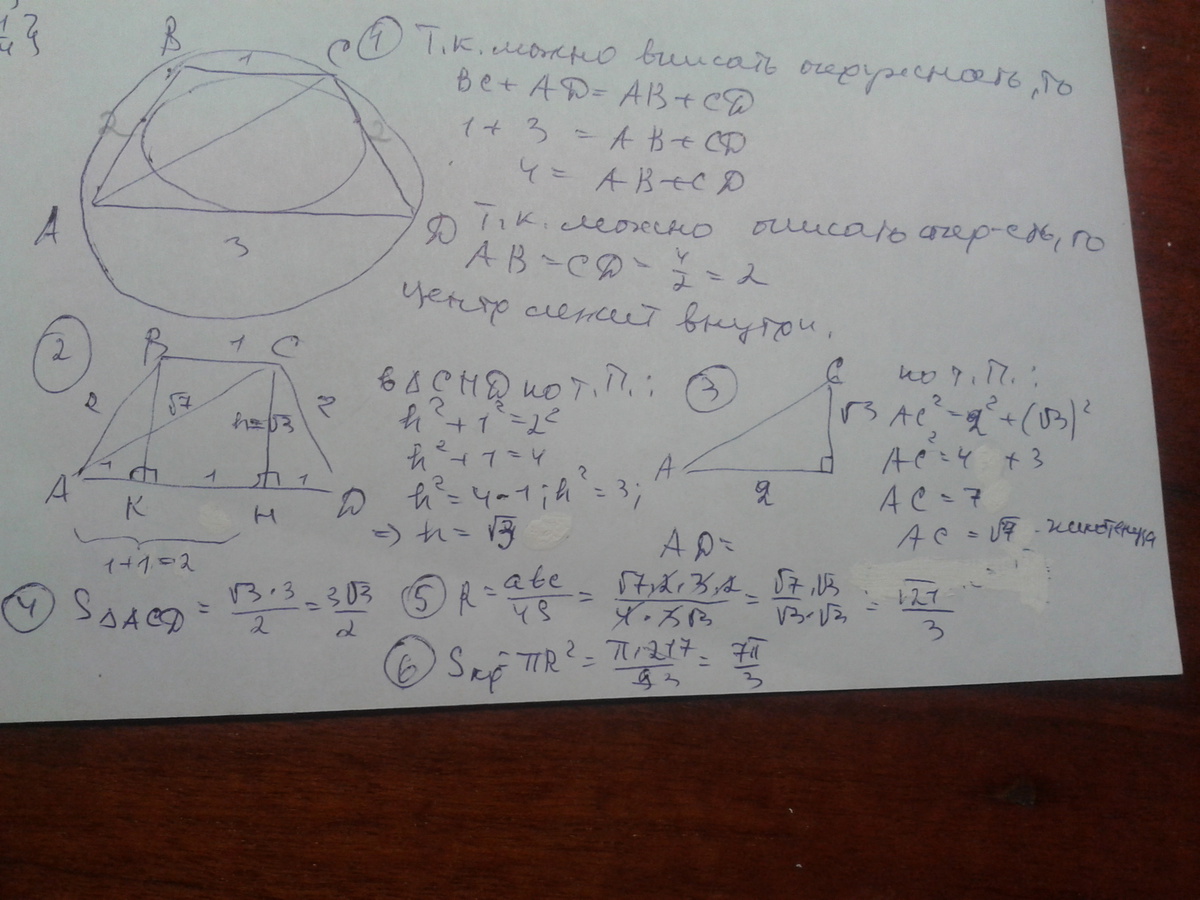 B 1 C
2 2
A 3 D
① Т.к. можно вписать окружность, то
BC + AD = AB + CD
1 + 3 = AB + CD
4 = AB + CD
Т.к. можно описать окр-сть, то
AB = CD = 4/2 = 2
центр лежит внутри.
② B 1 C
2 √7 h=√3 2
A 1 K 1 H 1 D
1+1=2
в △CHD по т.П.:
h² + 1² = 2²
h² + 1 = 4
h² = 4 - 1; h² = 3;
=> h = √3
③ C
√3
A 2
по т.П.:
AC² = 2² + (√3)²
AC² = 4 + 3
AC = 7
AC = √7 -
AD =
④ S△ACD = √3·3/2 = 3√3/2
⑤ R = abc/4S = √7·2·3·2/4·3√3 = √7·√3/√3·√3 = √21/3
⑥ Sкр = πR² = π·217/93 = 7π/3